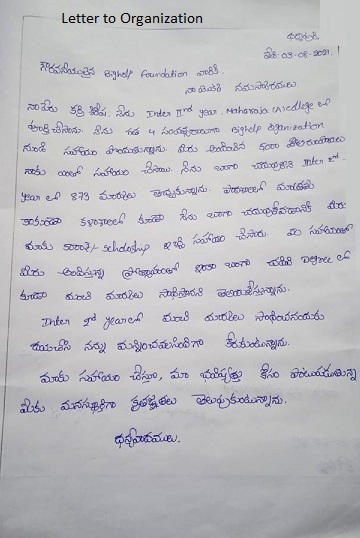 Letter to Organization
తేది: 03-08-2021.
గౌరవనీయులైన Bighelp Foundation వారికి.
నా యొక్క నమస్కారములు.
నా పేరు శిరీష. నేను Inter IInd year. Maharaja (A) college లో
పూర్తి చేసాను. నేను గత 4 సంవత్సరాలుగా Bighelp Organization
నుండి సహాయం పొందుతున్నాను. మీరు అందించిన 5000 రూపాయలు
నాకు సహాయం చేసాయి. నేను బాగా చదువుకుని Inter 2nd
year లో 873 మార్కులు తెచ్చుకున్నాను. పాఠశాలలో మాత్రమే
కాకుండా కళాశాలలో కూడా నేను బాగా చదువుకోవడానికి మీరు
మాకు 5000/- scholarship ఇచ్చి సహాయం చేసారు. మీ సహాయంతో
మీరు అందిస్తున్న ప్రోత్సాహంతో ఇంకా బాగా చదివి Degree లో
కూడా మంచి మార్కులు సాధిస్తానని తెలియజేస్తున్నాను.
Inter 2nd year లో మంచి మార్కులు సాధించనందుకు
దయచేసి నన్ను మన్నించవలసిందిగా కోరుకుంటున్నాను.
మాకు సహాయం చేస్తూ, మా భవిష్యత్తు కోసం పాటుపడుతున్న
మీకు మనస్ఫూర్తిగా కృతజ్ఞతలు తెలుపుకుంటున్నాను.
ధన్యవాదములు.